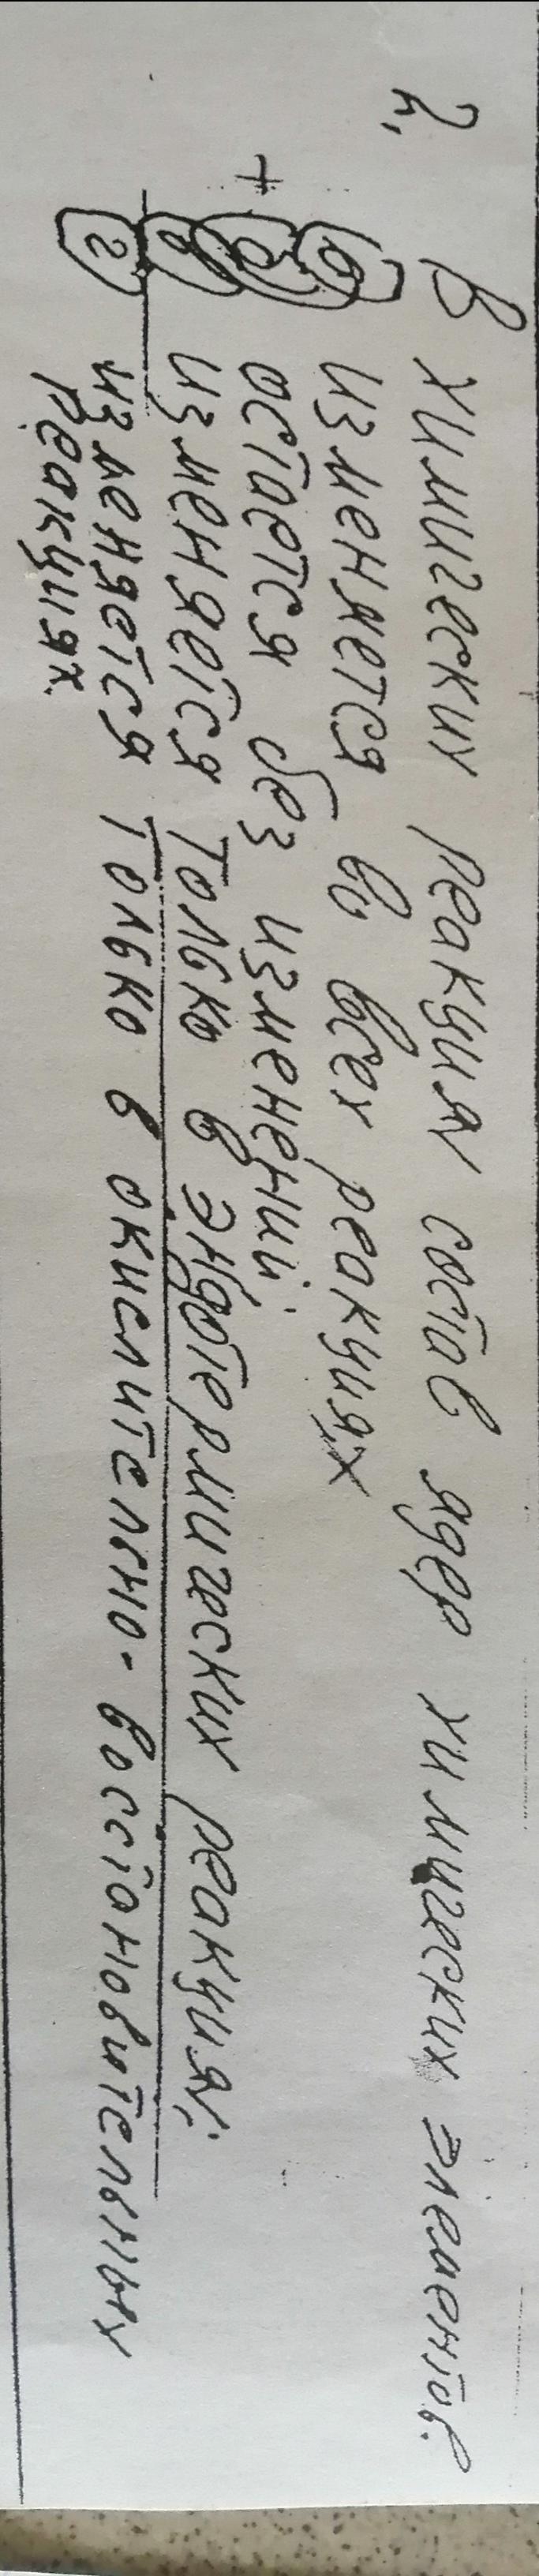 2. В химических реакциях состав ядер химических элементов.
изменяется во всех реакциях
+ остаётся без изменений.
в изменяется только в эндотермических реакциях;
г изменяется только в окислительно-восстановительных
реакциях.